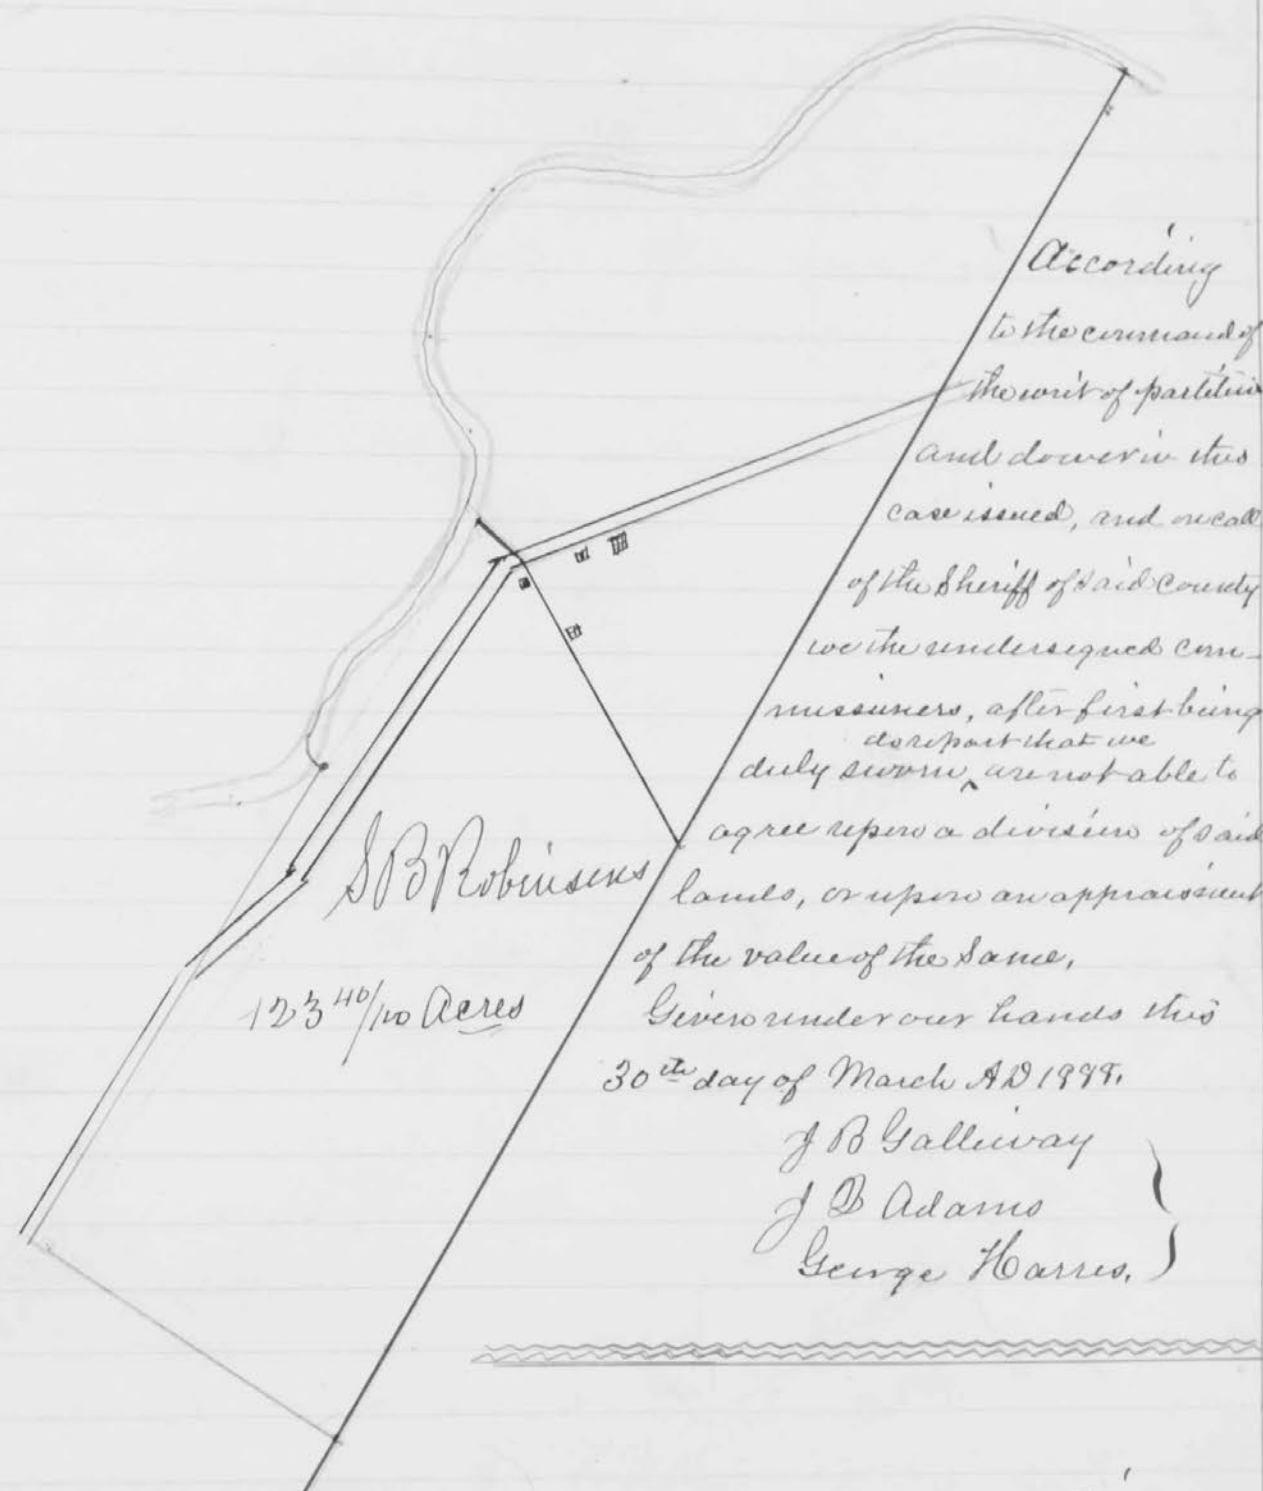 According
to the command of
the writ of partition
and dower in this
case issued, and on call
of the Sheriff of said County
we the undersigned com-
missioners, after first being
do report that we
duly sworn ‸ are not able to
agree upon a division of said
lands, or upon an appraisment
of the value of the same.
Given under our hands this
30th day of March AD 1888.
J B Galliway
J B Adams
George Harris.
S B Robinsons
123 40/100 Acres